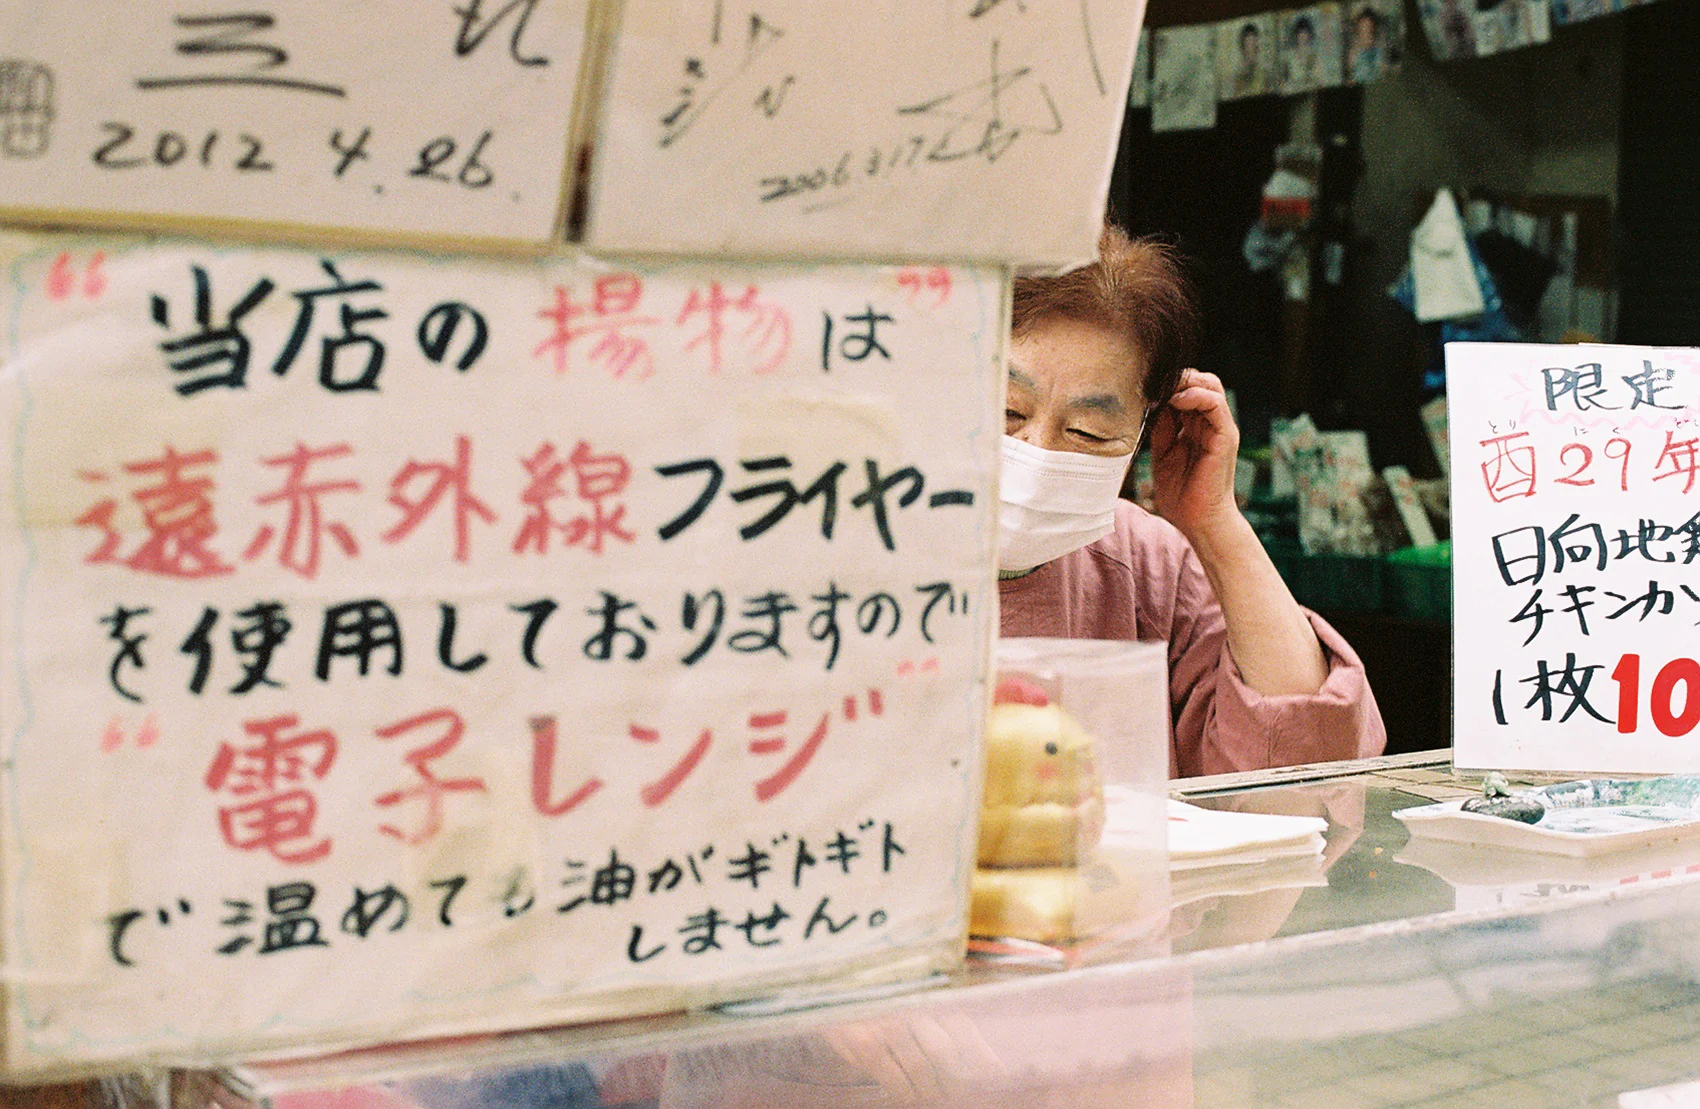 2012.4.26.
2006.3.17
“当店の揚物は”
遠赤外線フライヤー
を使用しておりますので
“電子レンジ”
で温めても油がギトギト
しません。
限定
とり にく
酉29年
日向地
チキンカ
1枚10